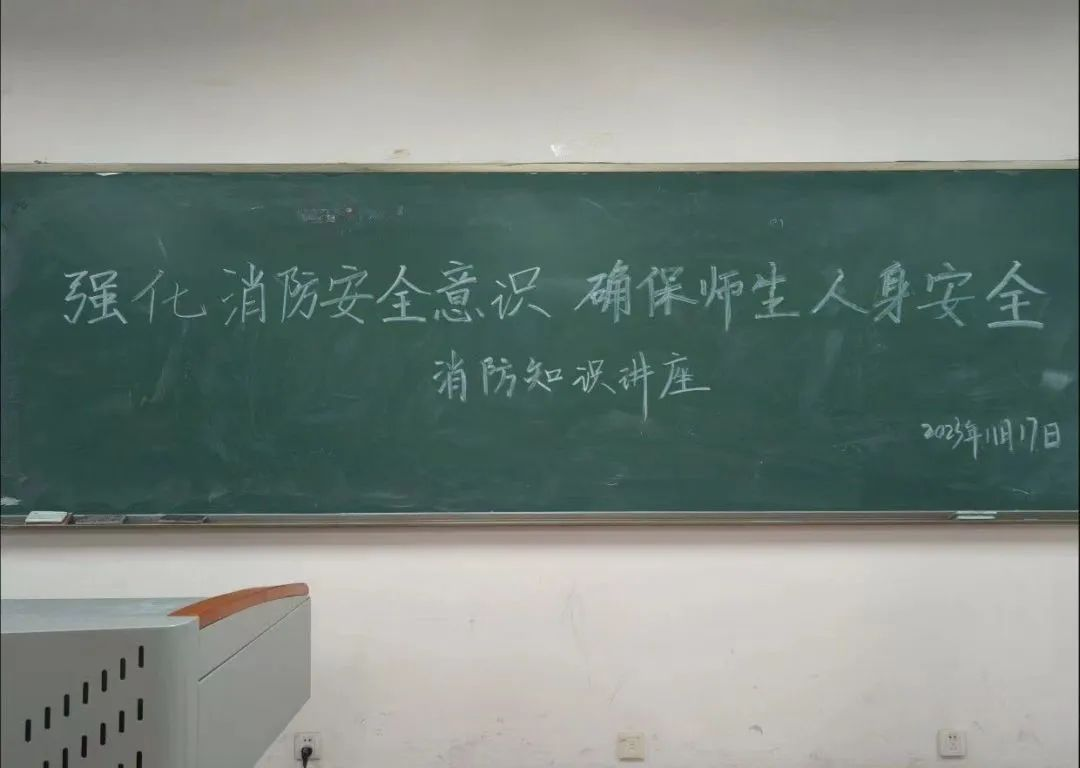 强化消防安全意识 确保师生人身安全
消防知识讲座
2023年11月17日